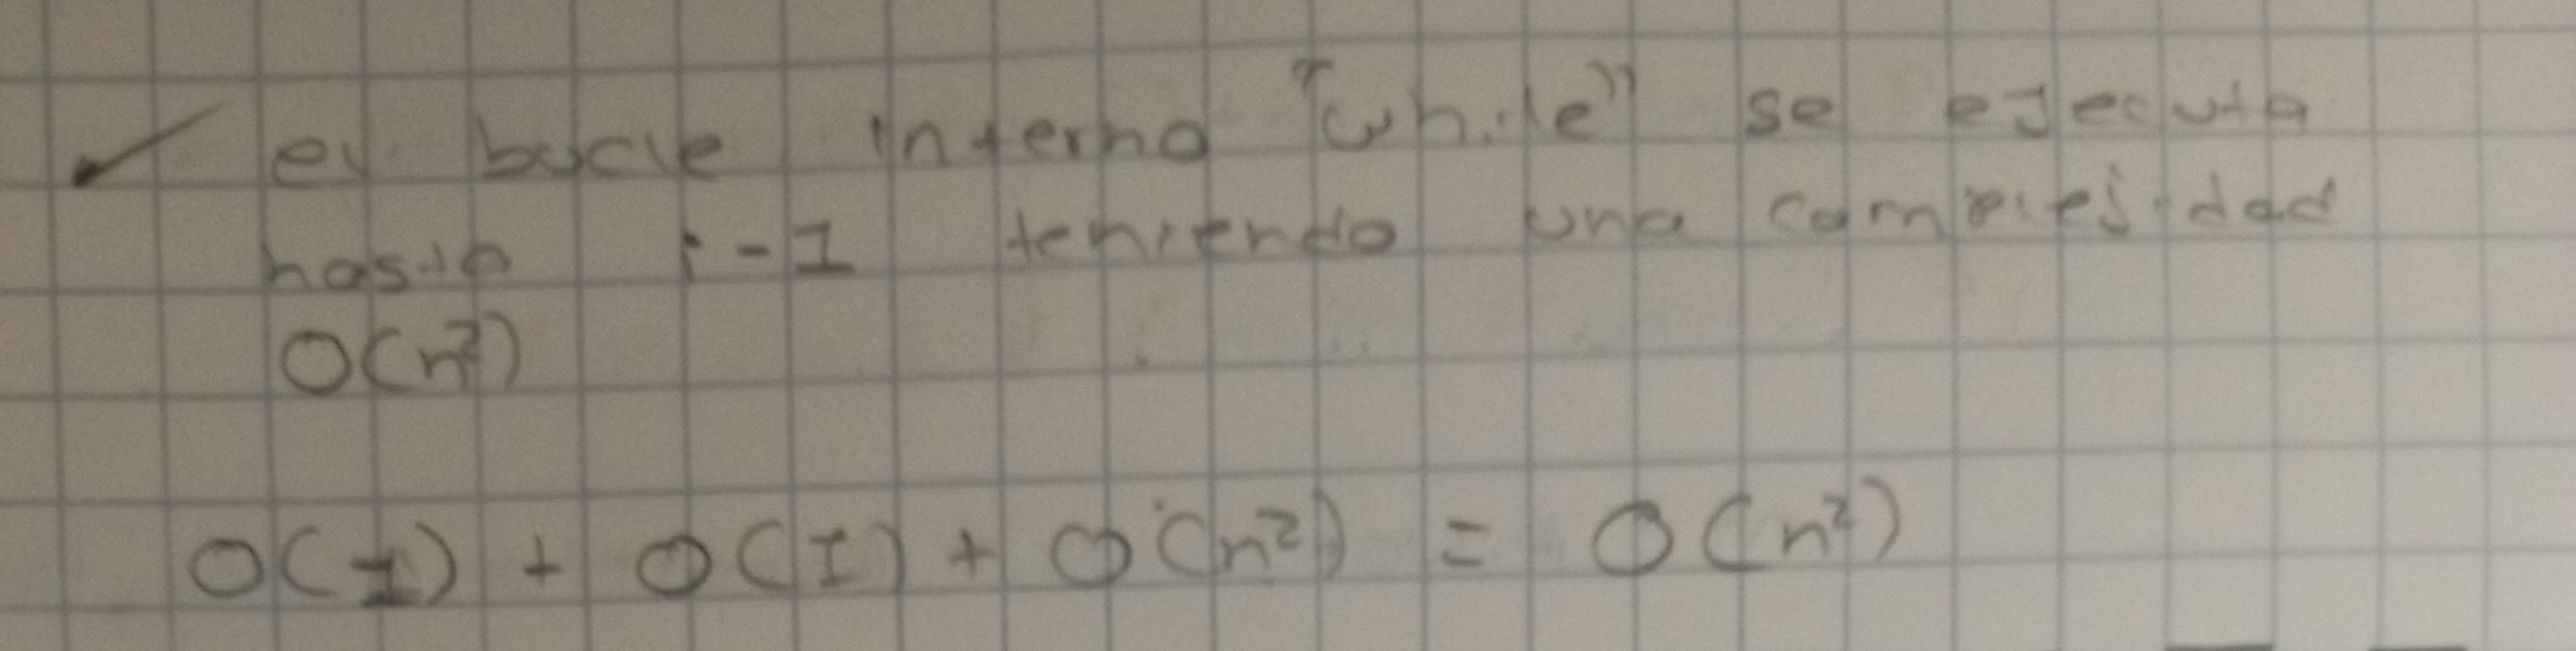 ✓ el bucle interno "while" se ejecuta
hasta i-1 teniendo una complejidad
O(n²)
O(1) + O(1) + O(n²) = O(n²)